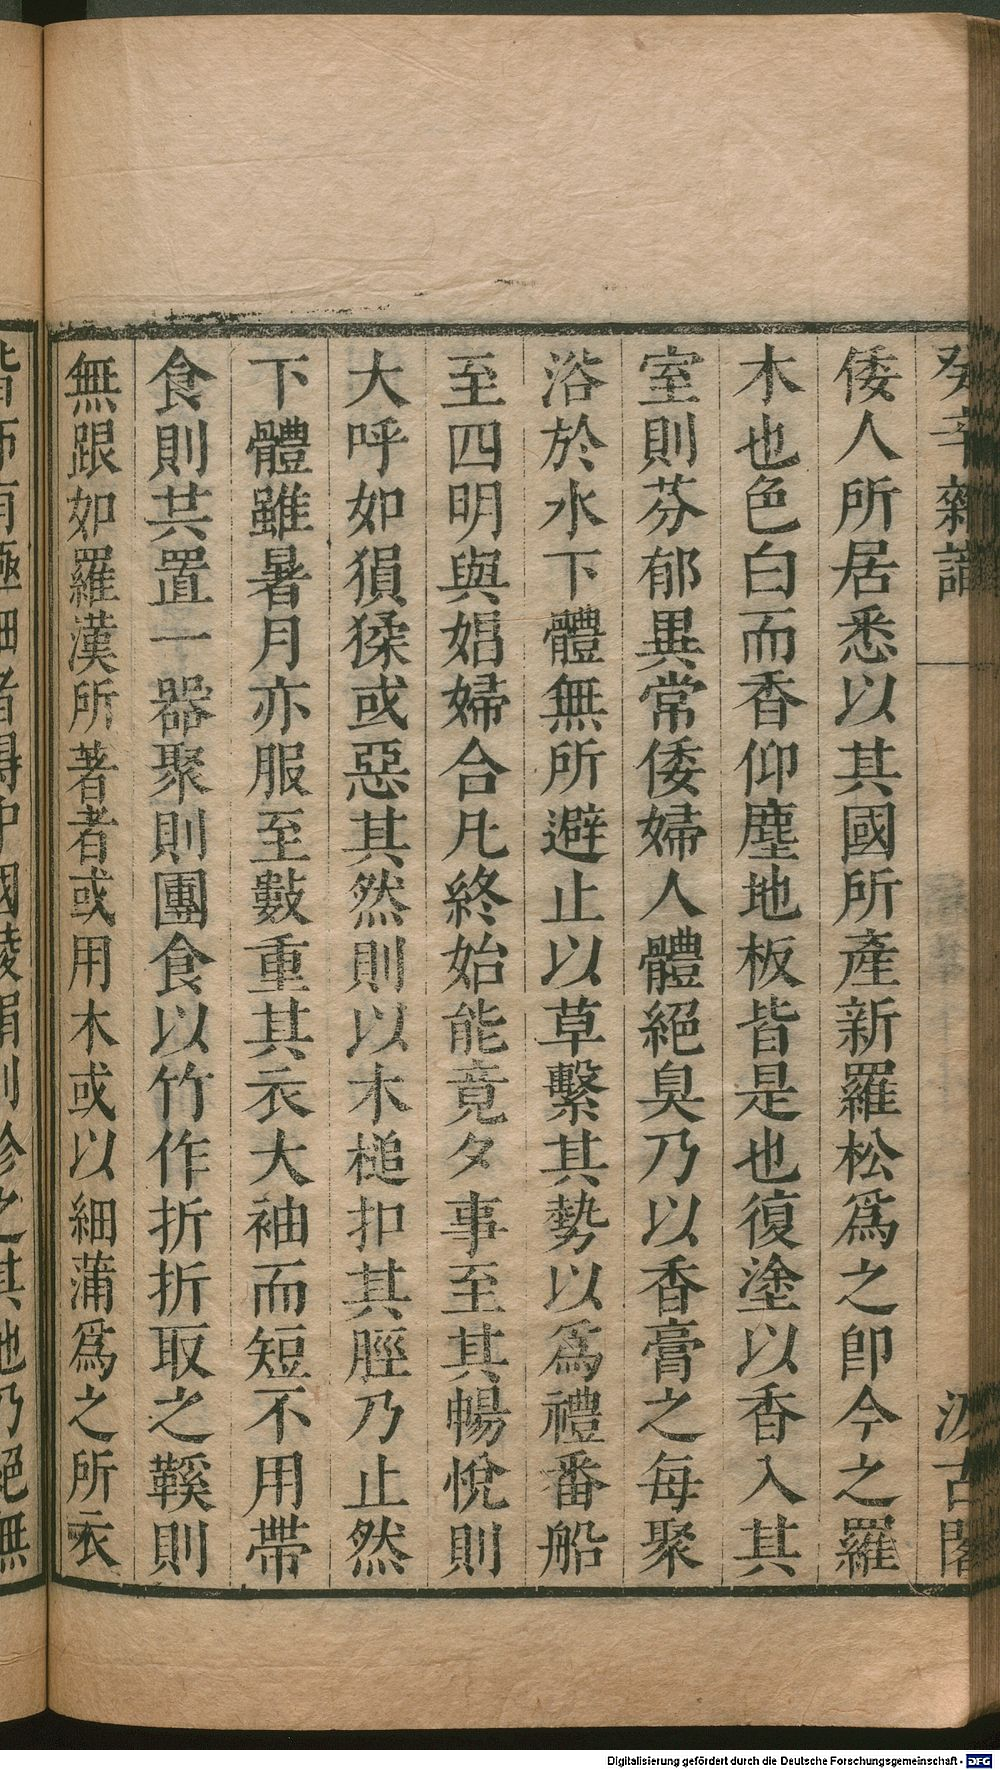 癸辛雜識
汲古閣
倭人所居悉以其國所產新羅松爲之卽今之羅
木也色白而香仰塵地板皆是也復塗以香入其
室則芬郁異常倭婦人體絕臭乃以香膏之每聚
浴於水下體無所避止以草繫其勢以爲禮番船
至四明與娼婦合凡終始能竟夕事至其暢悅則
大呼如狽猱或惡其然則以木槌扣其脛乃止然
下體雖暑月亦服至數重其衣大袖而短不用帶
食則共置一器聚則團食以竹作折折取之鞵則
無跟如羅漢所著者或用木或以細蒲爲之所衣
皆布有極細者得中國綾絹則珍之其地乃絕無
Digitalisierung gefördert durch die Deutsche Forschungsgemeinschaft - DFG